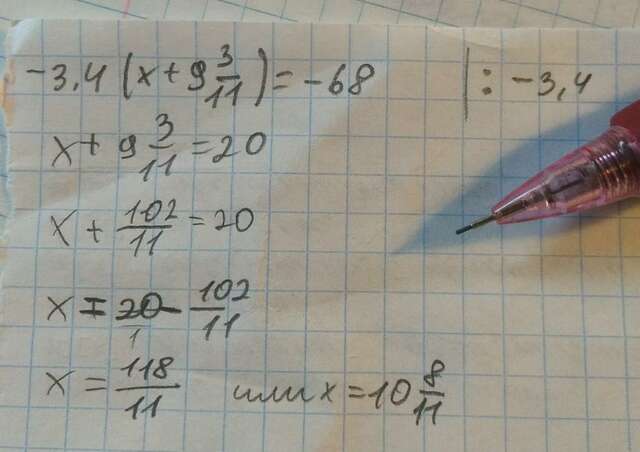 -3,4 (x + 9 3/11) = -68 | : -3,4
x + 9 3/11 = 20
x + 102/11 = 20
x = 20/1 - 102/11
x = 118/11 или x = 10 8/11